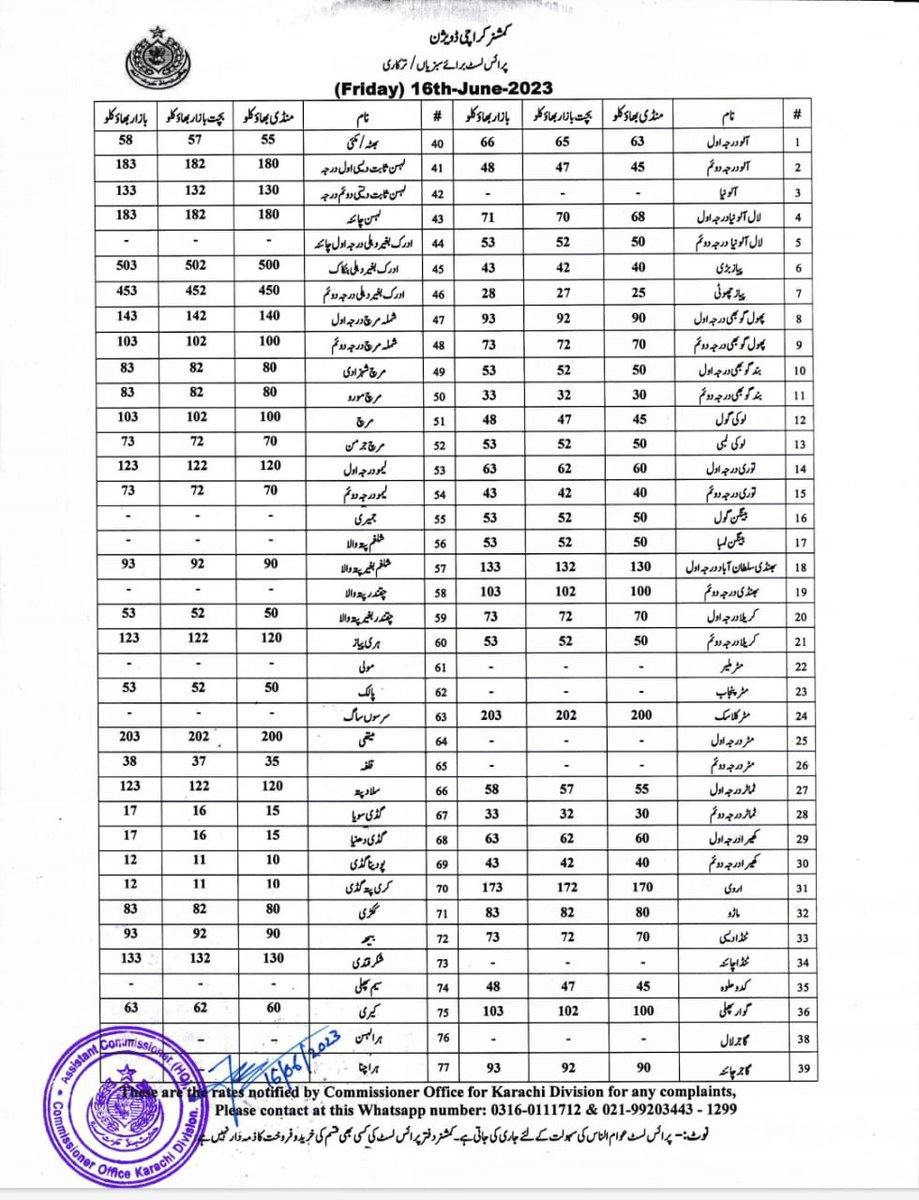 کمشنر کراچی ڈویژن
پرائس لسٹ برائے سبزیاں / ترکاری
(Friday) 16th-June-2023
# نام منڈی بھاؤ کلو بچت بازار بھاؤ کلو بازار بھاؤ کلو # نام منڈی بھاؤ کلو بچت بازار بھاؤ کلو بازار بھاؤ کلو
1 آلو درجہ اول 63 65 66 40 بھٹہ / مکئی 55 57 58
2 آلو درجہ دوئم 45 47 48 41 لہسن ثابت دیسی اول درجہ 180 182 183
3 آلو نیا - - - 42 لہسن ثابت دیسی دوئم درجہ 130 132 133
4 لال آلو نیا درجہ اول 68 70 71 43 لہسن چائنہ 180 182 183
5 لال آلو نیا درجہ دوئم 50 52 53 44 ادرک بغیر دہلی درجہ اول چائنہ - - -
6 پیاز بڑی 40 42 43 45 ادرک بغیر دہلی بنکاک 500 502 503
7 پیاز چھوٹی 25 27 28 46 ادرک بغیر دہلی درجہ دوئم 450 452 453
8 پھول گوبھی درجہ اول 90 92 93 47 شملہ مرچ درجہ اول 140 142 143
9 پھول گوبھی درجہ دوئم 70 72 73 48 شملہ مرچ درجہ دوئم 100 102 103
10 بند گوبھی درجہ اول 50 52 53 49 مرچ شہزادی 80 82 83
11 بند گوبھی درجہ دوئم 30 32 33 50 مرچ مورو 80 82 83
12 لوکی گول 45 47 48 51 مرچ 100 102 103
13 لوکی لمبی 50 52 53 52 مرچ جرمن 70 72 73
14 توری درجہ اول 60 62 63 53 لیمو درجہ اول 120 122 123
15 توری درجہ دوئم 40 42 43 54 لیمو درجہ دوئم 70 72 73
16 بینگن گول 50 52 53 55 جمیری - - -
17 بینگن لمبا 50 52 53 56 شلغم پتہ والا - - -
18 بھنڈی سلطان آباد درجہ اول 130 132 133 57 شلغم بغیر پتہ والا 90 92 93
19 بھنڈی درجہ دوئم 100 102 103 58 چقندر پتہ والا - - -
20 کریلا درجہ اول 70 72 73 59 چقندر بغیر پتہ والا 50 52 53
21 کریلا درجہ دوئم 50 52 53 60 ہری پیاز 120 122 123
22 مٹر ملیر - - - 61 مولی - - -
23 مٹر پنجاب - - - 62 پالک 50 52 53
24 مٹر کلاسک 200 202 203 63 سرسوں ساگ - - -
25 مٹر درجہ اول - - - 64 میتھی 200 202 203
26 مٹر درجہ دوئم - - - 65 قلفہ 35 37 38
27 ٹماٹر درجہ اول 55 57 58 66 سلاد پتہ 120 122 123
28 ٹماٹر درجہ دوئم 30 32 33 67 گڈی سویا 15 16 17
29 کھیرا درجہ اول 60 62 63 68 گڈی دھنیا 15 16 17
30 کھیرا درجہ دوئم 40 42 43 69 پودینا گڈی 10 11 12
31 اروی 170 172 173 70 کری پتہ گڈی 10 11 12
32 ماڑو 80 82 83 71 ککڑی 80 82 83
33 ٹنڈا دیسی 70 72 73 72 بیہہ 90 92 93
34 ٹنڈا چائنہ - - - 73 شکر قندی 130 132 133
35 کدو حلوہ 45 47 48 74 سیم پھلی - - -
36 گوار پھلی 100 102 103 75 کیری 60 62 63
38 گاجر لال - - - 76 ہرا لہسن - -
39 گاجر چائنہ 90 92 93 77 ہرا چنا -
16/06/2023
These are the rates notified by Commissioner Office for Karachi Division for any complaints,
Please contact at this Whatsapp number: 0316-0111712 & 021-99203443 - 1299
نوٹ:- پرائس لسٹ عوام الناس کی سہولت کے لئے جاری کی جاتی ہے۔ کمشنر دفتر پرائس لسٹ کی کسی بھی قسم کی خرید و فروخت کا ذمہ دار نہیں ہے۔
Assistant Commissioner (HQ)
Commissioner Office Karachi Division.